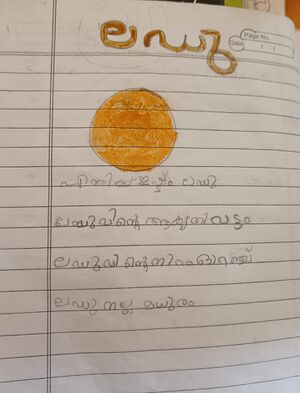 ലഡു
Page No.
Date: / /
എനിക്ക് ഇഷ്ടം ലഡു
ലഡുവിന്റെ ആകൃതി വട്ടം
ലഡുവിന്റെ നിറം ഓറഞ്ച്
ലഡു നല്ല മധുരം